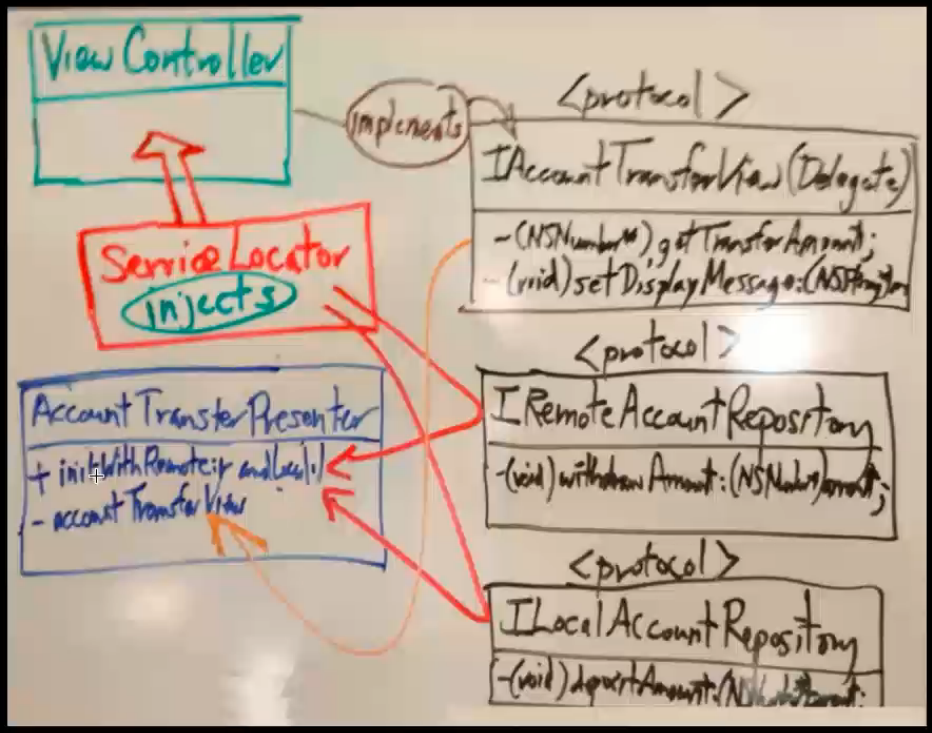 View Controller
implements
<protocol>
IAccountTransferView (Delegate)
-(NSNumber*) getTransferAmount;
-(void) setDisplayMessage:(NSString)
Service Locator
injects
<protocol>
IRemoteAccountRepository
-(void) withdrawAmount:(NSNumber*)amount;
AccountTransferPresenter
+ initWithRemote: andLocal:
- accountTransferView
<protocol>
ILocalAccountRepository
-(void) depositAmount:(NSNumber*)amount;